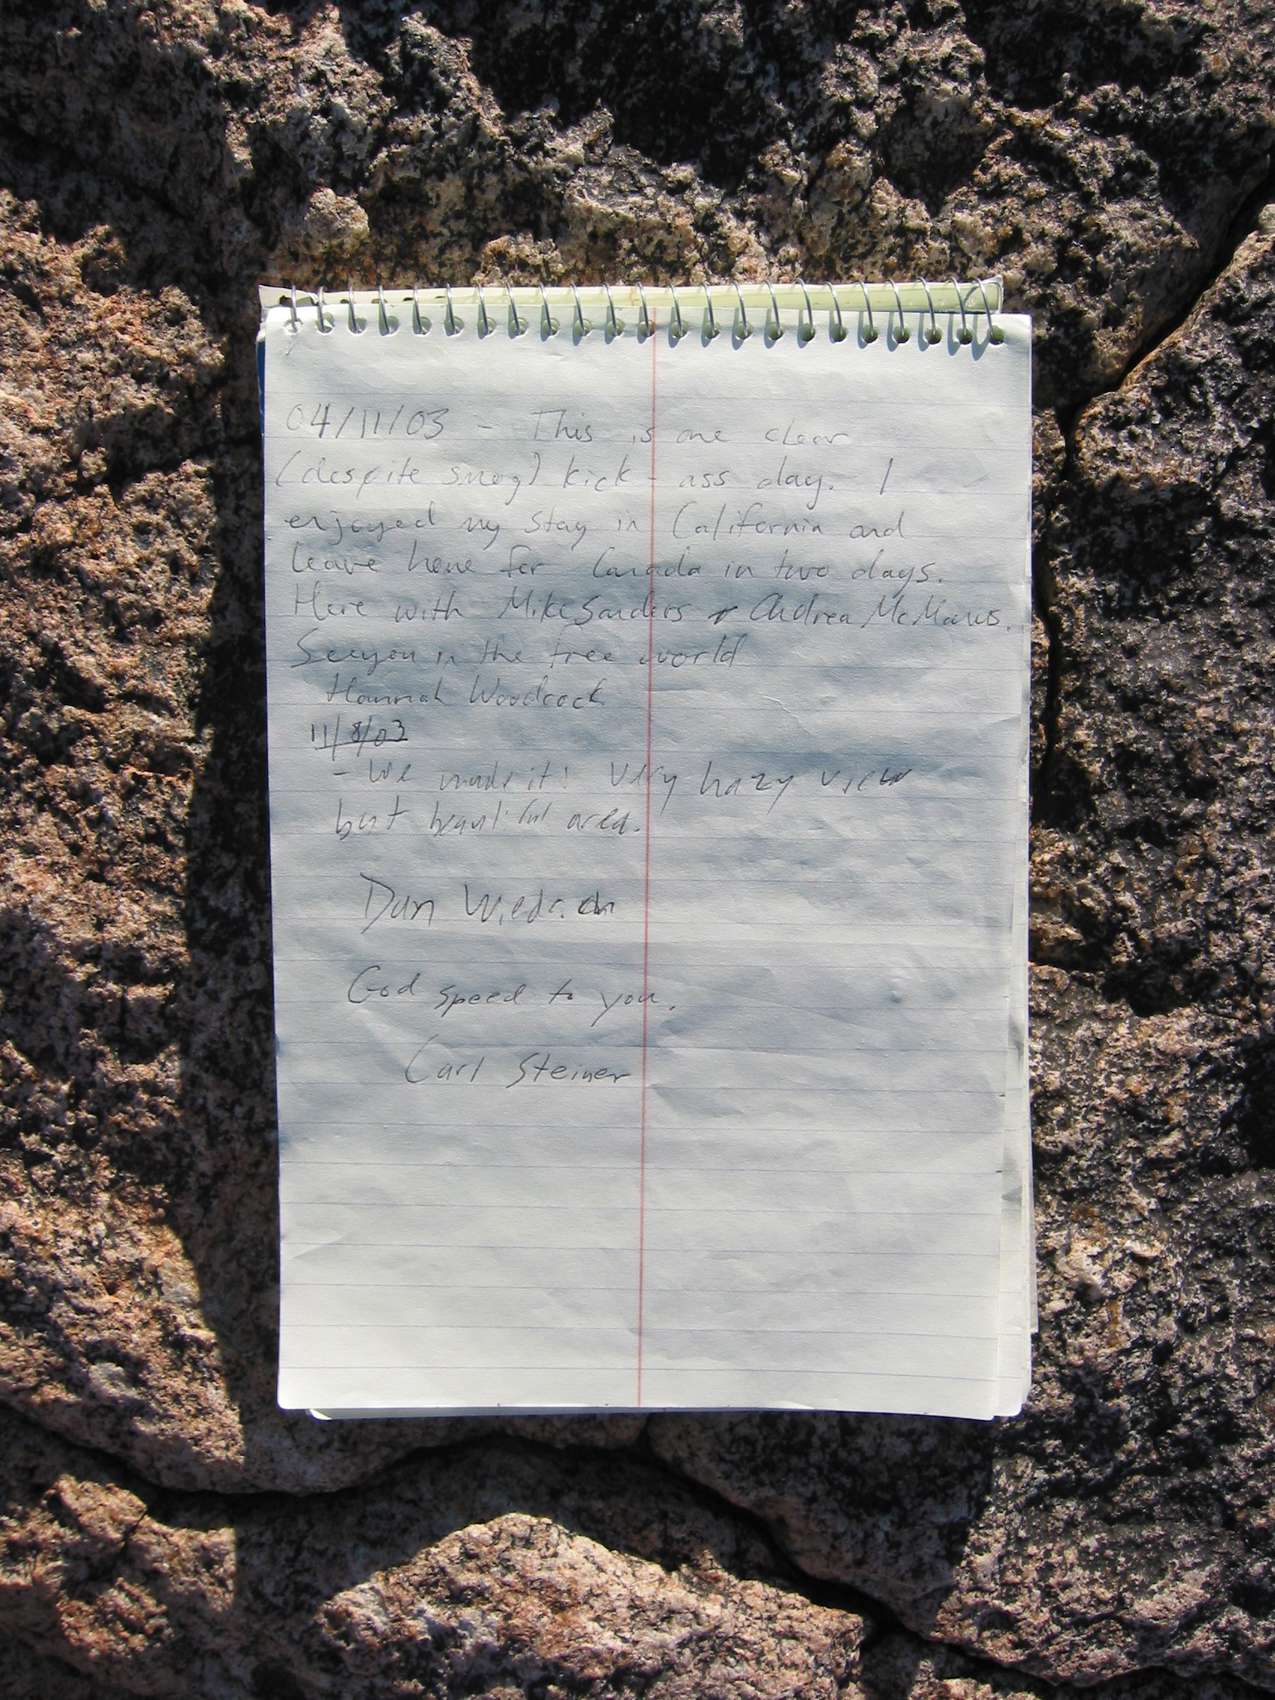 04/11/03 - This is one clear
(despite smog) kick-ass day. I
enjoyed my stay in California and
leave here for Canada in two days.
Here with Mike Sanders & Andrea McManus.
See you in the free world
Hannah Woodcock
11/8/03
- We made it! Very hazy view
but beautiful area.
Dan
God speed to you.
Carl Steiner